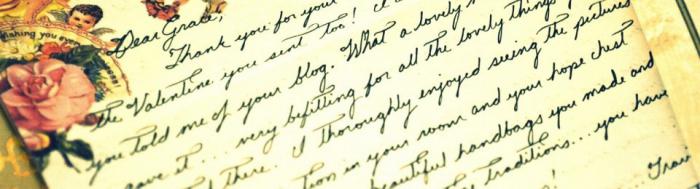 wishing you every
Dear Grace,
Thank you for your
the Valentine you sent too! I
you told me of your blog. What a lovely
gave it... very befitting for all the lovely things
there. I thoroughly enjoyed seeing the pictures
in your room and your hope chest
beautiful handbags you made and
traditions... you have